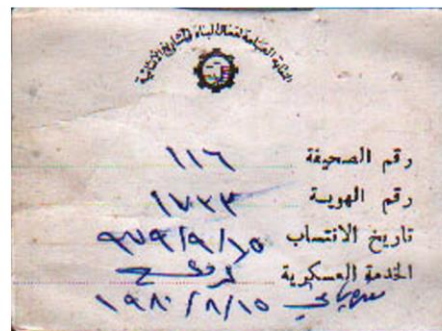 النقابة العامة لعمال البناء والمشاريع الإنشائية
رقم الصحيفة ١١٦
رقم الهوية ١٧٣٣
تاريخ الانتساب ٩٧٩/٩/١٥
الخدمة العسكرية
١٩٨٠/٨/١٥